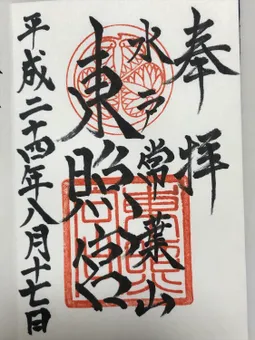 奉拝
水戸常葉山
東照宮
平成二十四年八月十七日